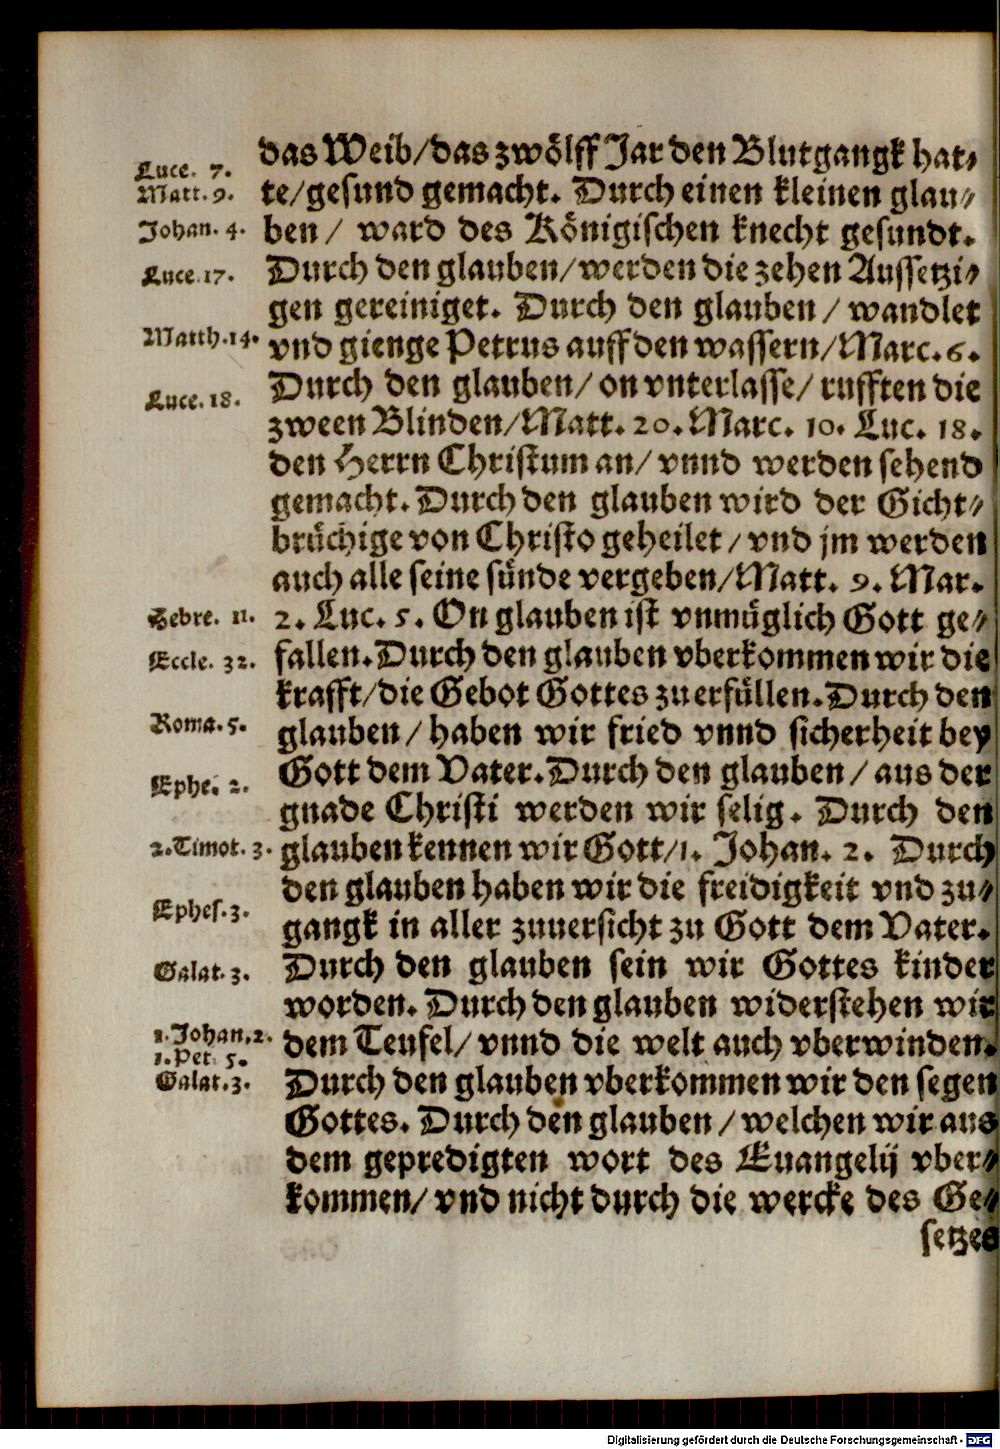 Luce. 7.
Matt. 9.
Johan. 4.
Luce. 17.
Matth. 14.
Luce. 18.
Hebre. 11.
Eccle. 32.
Roma. 5.
Ephe. 2.
2. Timot. 3.
Ephes. 3.
Galat. 3.
1. Johan. 2.
1. Pet. 5.
Galat. 3.
das Weib/das zwölff Jar den Blutgangk hat⸗
te/gesund gemacht. Durch einen kleinen glau⸗
ben/ ward des Königischen knecht gesundt.
Durch den glauben/werden die zehen Aussetzi⸗
gen gereiniget. Durch den glauben/ wandlet
vnd gienge Petrus auff den wassern/Marc. 6.
Durch den glauben/ on vnterlasse/ rufften die
zween Blinden/Matt. 20. Marc. 10. Luc. 18.
den Herrn Christum an/ vnnd werden sehend
gemacht. Durch den glauben wird der Gicht⸗
brüchige von Christo geheilet/ vnd jm werden
auch alle seine sünde vergeben/Matt. 9. Mar.
2. Luc. 5. On glauben ist vnmüglich Gott ge⸗
fallen. Durch den glauben vberkommen wir die
krafft/die Gebot Gottes zu erfüllen. Durch den
glauben/ haben wir fried vnnd sicherheit bey
Gott dem Vater. Durch den glauben/ aus der
gnade Christi werden wir selig. Durch den
glauben kennen wir Gott/1. Johan. 2. Durch
den glauben haben wir die freidigkeit vnd zu⸗
gangk in aller zuuersicht zu Gott dem Vater.
Durch den glauben sein wir Gottes kinder
worden. Durch den glauben widerstehen wir
dem Teufel/ vnnd die welt auch vberwinden.
Durch den glauben vberkommen wir den segen
Gottes. Durch den glauben/ welchen wir aus
dem gepredigten wort des Euangelij vber⸗
kommen/ vnd nicht durch die wercke des Ge⸗
setzes
Digitalisierung gefördert durch die Deutsche Forschungsgemeinschaft - DFG